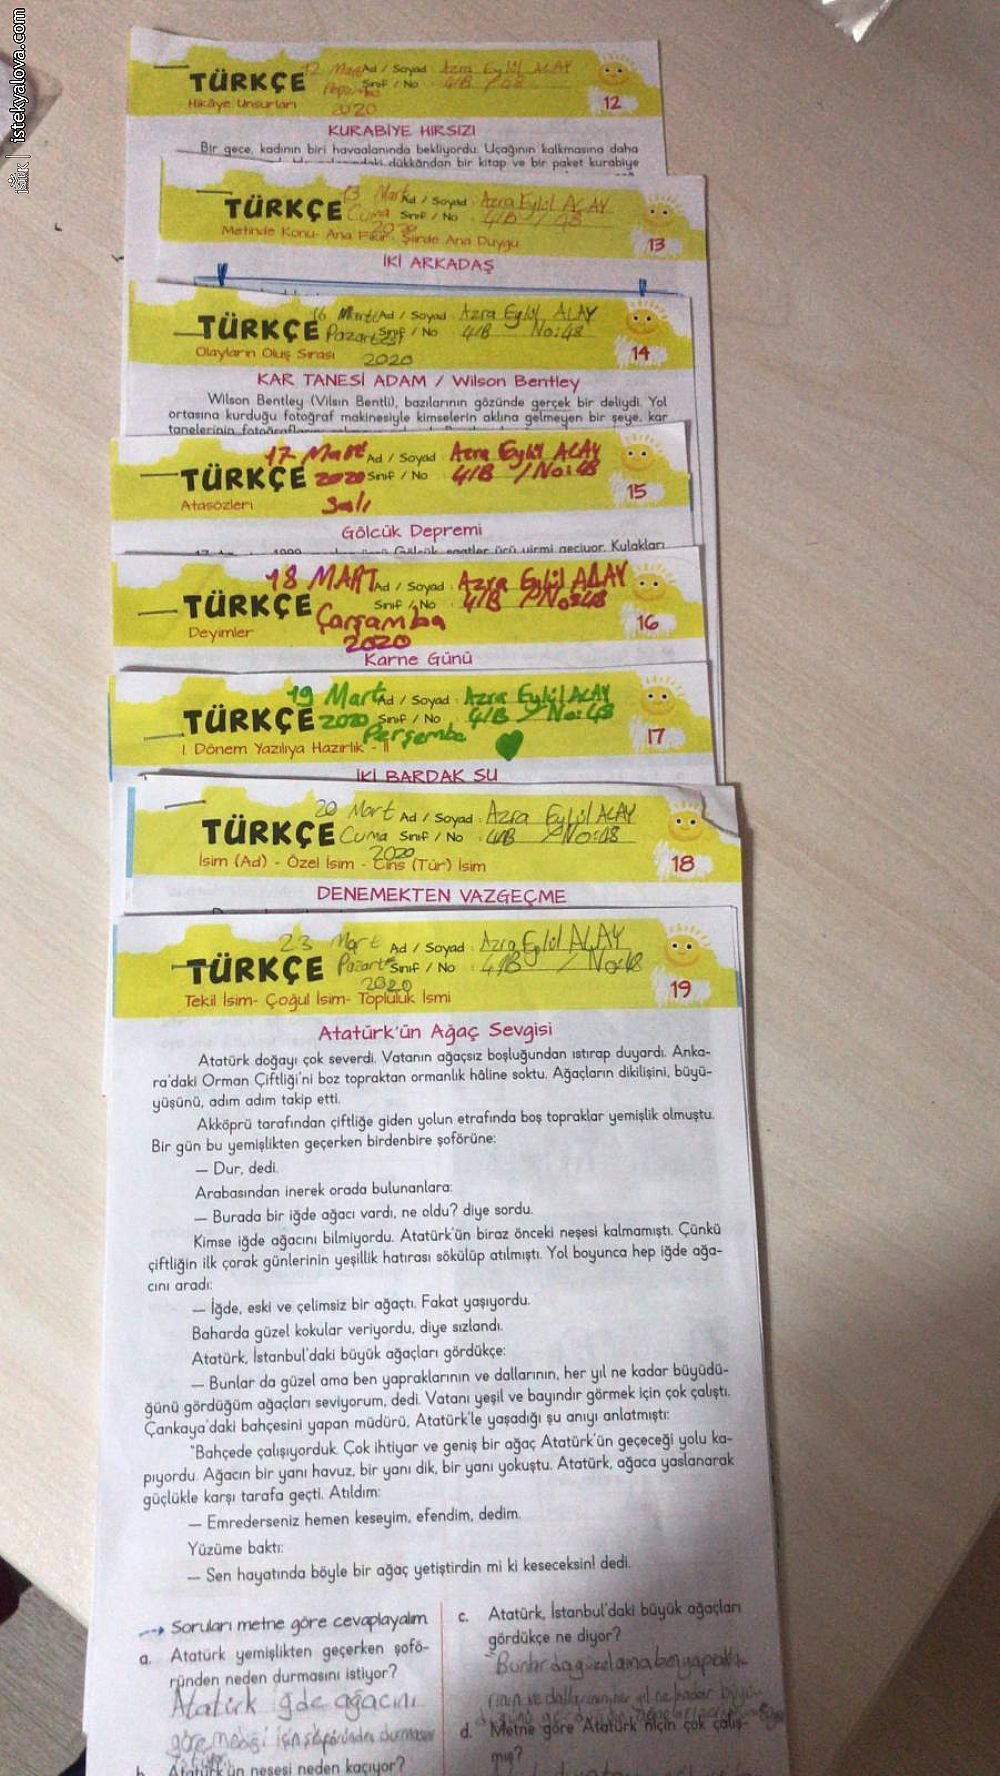 istekyalova.com
TÜRKÇE 12 Mart Ad / Soyad : Azra Eylül ALAY
Perşembe Sınıf / No : 4/B / 48
Hikâye Unsurları 2020 12
KURABİYE HIRSIZI
Bir gece, kadının biri havaalanında bekliyordu. Uçağının kalkmasına daha
dükkândan bir kitap ve bir paket kurabiye
TÜRKÇE 13 Mart Ad / Soyad : Azra Eylül ALAY
Cuma Sınıf / No : 4/B / 48
2020
Metinde Konu- Ana Fikir- Şiirde Ana Duygu 13
İKİ ARKADAŞ
TÜRKÇE 16 Mart Ad / Soyad : Azra Eylül ALAY
Pazartesi Sınıf / No : 4/B No:48
Olayların Oluş Sırası 2020 14
KAR TANESİ ADAM / Wilson Bentley
Wilson Bentley (Vilsın Bentli), bazılarının gözünde gerçek bir deliydi. Yol
ortasına kurduğu fotoğraf makinesiyle kimselerin aklına gelmeyen bir şeye, kar
tanelerinin fotoğraflarını
TÜRKÇE 17 Mart Ad / Soyad : Azra Eylül ALAY
2020 Sınıf / No : 4/B / No:48
Atasözleri Salı 15
Gölcük Depremi
TÜRKÇE 18 MART Ad / Soyad : Azra Eylül ALAY
Çarşamba Sınıf / No : 4/B / No:48
Deyimler 2020 16
Karne Günü
TÜRKÇE 19 Mart Ad / Soyad : Azra Eylül ALAY
2020 Sınıf / No : 4/B / No:48
Perşembe 17
I. Dönem Yazılıya Hazırlık - II
İKİ BARDAK SU
TÜRKÇE 20 Mart Ad / Soyad : Azra Eylül ALAY
Cuma Sınıf / No : 4/B / No:48
2020
İsim (Ad) - Özel İsim - Cins (Tür) İsim 18
DENEMEKTEN VAZGEÇME
TÜRKÇE 23 Mart Ad / Soyad : Azra Eylül ALAY
Pazartesi Sınıf / No : 4/B / No:48
2020
Tekil İsim- Çoğul İsim- Topluluk İsmi 19
Atatürk'ün Ağaç Sevgisi
Atatürk doğayı çok severdi. Vatanın ağaçsız boşluğundan ıstırap duyardı. Anka-
ra'daki Orman Çiftliği'ni boz topraktan ormanlık hâline soktu. Ağaçların dikilişini, büyü-
yüşünü, adım adım takip etti.
Akköprü tarafından çiftliğe giden yolun etrafında boş topraklar yemişlik olmuştu.
Bir gün bu yemişlikten geçerken birdenbire şoförüne:
— Dur, dedi.
Arabasından inerek orada bulunanlara:
— Burada bir iğde ağacı vardı, ne oldu? diye sordu.
Kimse iğde ağacını bilmiyordu. Atatürk'ün biraz önceki neşesi kalmamıştı. Çünkü
çiftliğin ilk çorak günlerinin yeşillik hatırası sökülüp atılmıştı. Yol boyunca hep iğde ağa-
cını aradı:
— İğde, eski ve çelimsiz bir ağaçtı. Fakat yaşıyordu.
Baharda güzel kokular veriyordu, diye sızlandı.
Atatürk, İstanbul'daki büyük ağaçları gördükçe:
— Bunlar da güzel ama ben yapraklarının ve dallarının, her yıl ne kadar büyüdü-
ğünü gördüğüm ağaçları seviyorum, dedi. Vatanı yeşil ve bayındır görmek için çok çalıştı.
Çankaya'daki bahçesini yapan müdürü, Atatürk'le yaşadığı şu anıyı anlatmıştı:
"Bahçede çalışıyorduk. Çok ihtiyar ve geniş bir ağaç Atatürk'ün geçeceği yolu ka-
pıyordu. Ağacın bir yanı havuz, bir yanı dik, bir yanı yokuştu. Atatürk, ağaca yaslanarak
güçlükle karşı tarafa geçti. Atıldım:
— Emrederseniz hemen keseyim, efendim, dedim.
Yüzüme baktı:
— Sen hayatında böyle bir ağaç yetiştirdin mi ki keseceksin! dedi.
Soruları metne göre cevaplayalım.
a. Atatürk yemişlikten geçerken şofö-
ründen neden durmasını istiyor?
Atatürk iğde ağacını
göremediği için şoföründen durmasını
b. Atatürk'ün neşesi neden kaçıyor?
c. Atatürk, İstanbul'daki büyük ağaçları
gördükçe ne diyor?
"Bunlar da güzel ama ben yapraklar
rının ve dallarının her yıl ne kadar büyü-
d. Metne göre Atatürk niçin çok çalış-
mış?